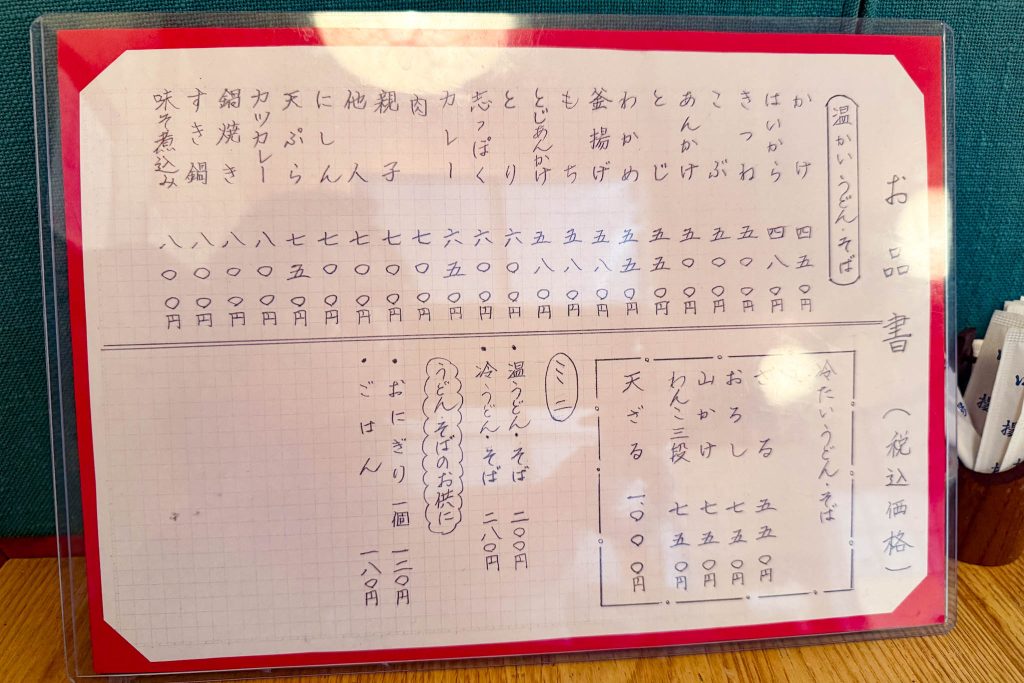 お品書（税込価格）
温かいうどん・そば
かけ 四五〇円
はいから 四八〇円
きつね 五〇〇円
こぶ 五〇〇円
あんかけ 五〇〇円
とじ 五五〇円
わかめ 五五〇円
釜揚げ 五八〇円
もち 五八〇円
とじあんかけ 五八〇円
とり 六〇〇円
志っぽく 六〇〇円
カレー 六五〇円
肉 七〇〇円
親子 七〇〇円
他人 七〇〇円
にしん 七〇〇円
天ぷら 七五〇円
カツカレー 八〇〇円
鍋焼き 八〇〇円
すき鍋 八〇〇円
味そ煮込み 八〇〇円
冷たいうどん・そば
ざる 五五〇円
おろし 七五〇円
山かけ 七五〇円
わんこ三段 七五〇円
天ざる 一、〇〇〇円
ミニ
・温うどん・そば 二〇〇円
・冷うどん・そば 二八〇円
うどん・そばのお供に
・おにぎり一個 一二〇円
・ごはん 一八〇円